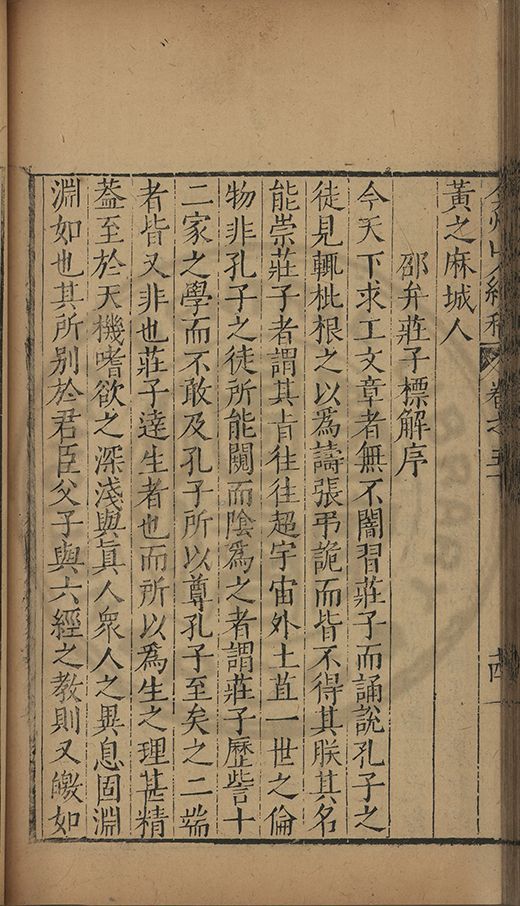 弇州山人續稿 卷之五十 十四
黃之麻城人
邵弁莊子標解序
今天下求工文章者無不闇習莊子而誦說孔子之
徒見輒枇根之以爲譸張弔詭而皆不得其朕其名
能崇莊子者謂其㫖往往超宇宙外土苴一世之倫
物非孔子之徒所能闚而陰爲之者謂莊子歷訾十
二家之學而不敢及孔子所以尊孔子至矣之二端
者皆又非也莊子達生者也而所以爲生之理甚精
葢至於天機嗜欲之深淺與眞人衆人之異息固淵
淵如也其所别於君臣父子與六經之教則又皦如